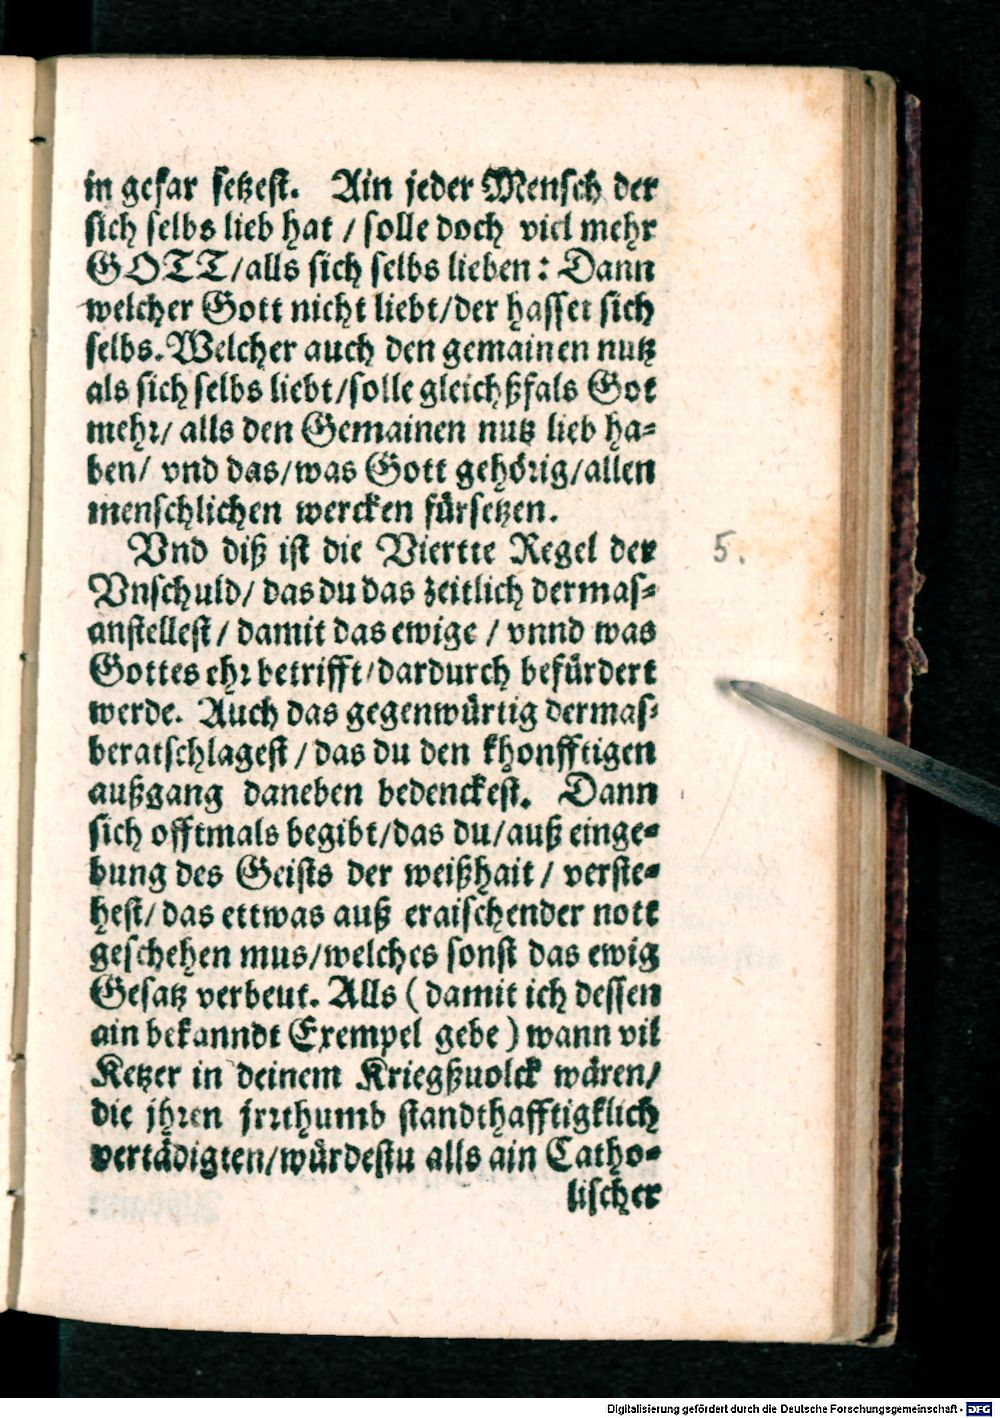 in gefar setzest. Ain jeder Mensch der
sich selbs lieb hat / solle doch viel mehr
GOTT/alls sich selbs lieben: Dann
welcher Gott nicht liebt/der hasset sich
selbs. Welcher auch den gemainen nutz
als sich selbs liebt/solle gleichßfals Got
mehr/ alls den Gemainen nutz lieb ha-
ben/ vnd das/was Gott gehörig/allen
menschlichen wercken fürsetzen.
Vnd diß ist die Viertte Regel der
5.
Vnschuld/ das du das zeitlich dermas-
anstellest / damit das ewige / vnnd was
Gottes ehr betrifft/dardurch befürdert
werde. Auch das gegenwürtig dermas-
beratschlagest / das du den khonfftigen
außgang daneben bedenckest. Dann
sich offtmals begibt/das du/auß einge-
bung des Geists der weißhait / verste-
hest/ das ettwas auß eraischender nott
geschehen mus/welches sonst das ewig
Gesatz verbeut. Alls ( damit ich dessen
ain bekanndt Exempel gebe ) wann vil
Ketzer in deinem Kriegßuolck wären/
die jhren jrrthumb standthafftigklich
vertädigten/würdestu alls ain Catho-
lischer
Digitalisierung gefördert durch die Deutsche Forschungsgemeinschaft - DFG